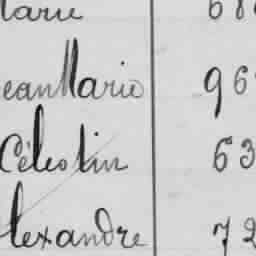 arie 68
ean Marie 96
Célestin 63
lexandre 72